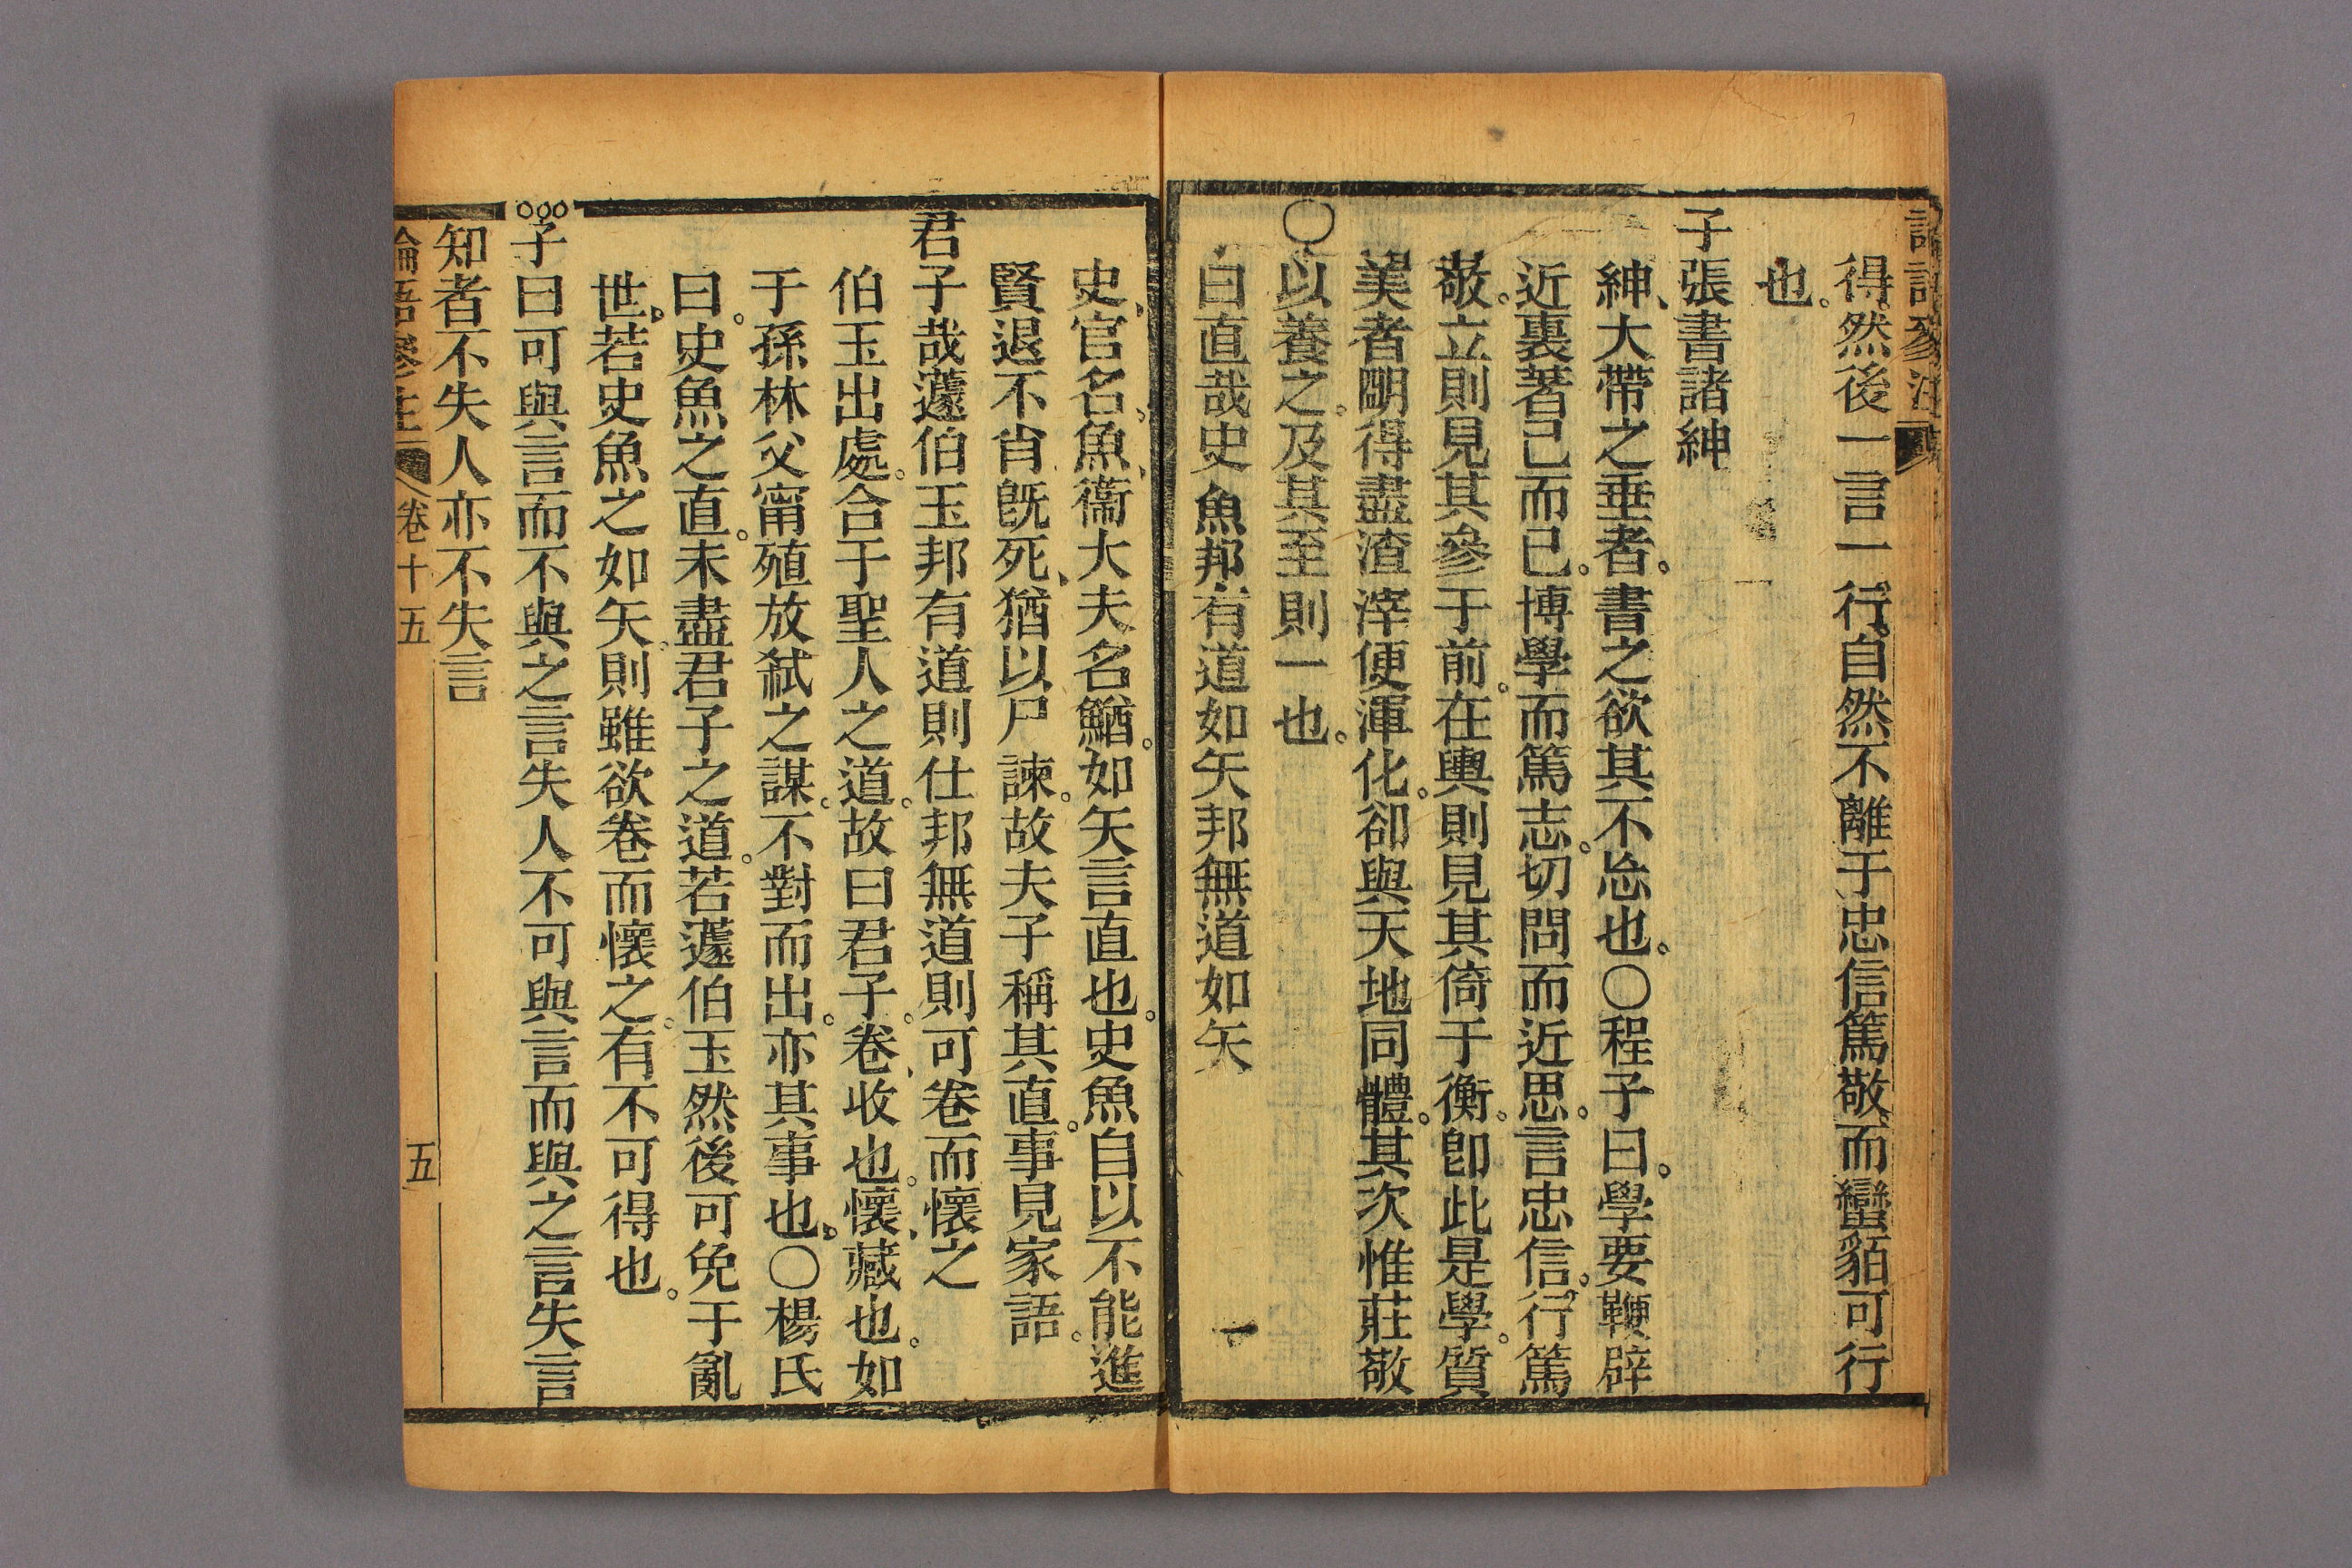 得。然後一言一行。自然不離于忠信篤敬。而蠻貊可行
也。
子張書諸紳
紳、大帶之垂者。書之欲其不忘也。○程子曰。學要鞭辟
近裏著己而已。博學而篤志。切問而近思。言忠信。行篤
敬。立則見其參于前。在輿則見其倚于衡。卽此是學。質
美者明得盡。渣滓便渾化。卻與天地同體。其次惟莊敬
以養之。及其至則一也。
○曰直哉史魚邦有道如矢邦無道如矢
史、官名。魚、衞大夫名鰌。如矢言直也。史魚自以不能進
賢退不肖。旣死、猶以尸諫。故夫子稱其直。事見家語。
君子哉蘧伯玉邦有道則仕邦無道則可卷而懷之
伯玉出處。合于聖人之道。故曰君子。卷、收也。懷、藏也。如
于孫林父甯殖放弒之謀。不對而出。亦其事也。○楊氏
曰。史魚之直。未盡君子之道。若蘧伯玉然後可免于亂
世。若史魚之如矢。則雖欲卷而懷之。有不可得也。
○○○子曰可與言而不與之言失人不可與言而與之言失言
知者不失人亦不失言
論語 卷十五 五